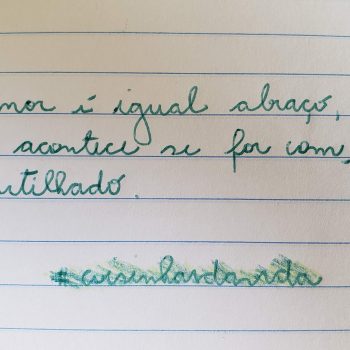 mor é igual abraço,
acontece se for com,
rtilhado.
#coisinhasdavida